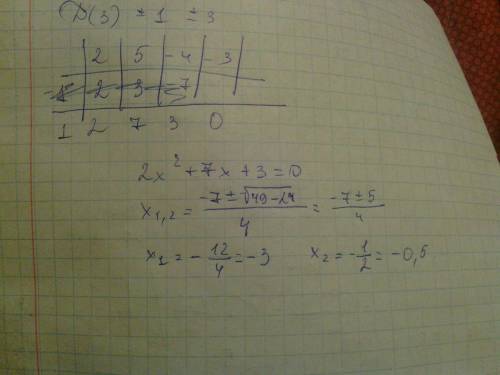 D(3) ± 1 ± 3
2 5 -4 -3
-1 2 3 -7
1 2 7 3 0
2x² + 7x + 3 = 0
x₁,₂ = (-7 ± √(49 - 24))/4 = (-7 ± 5)/4
x₁ = -12/4 = -3 x₂ = -1/2 = -0,5